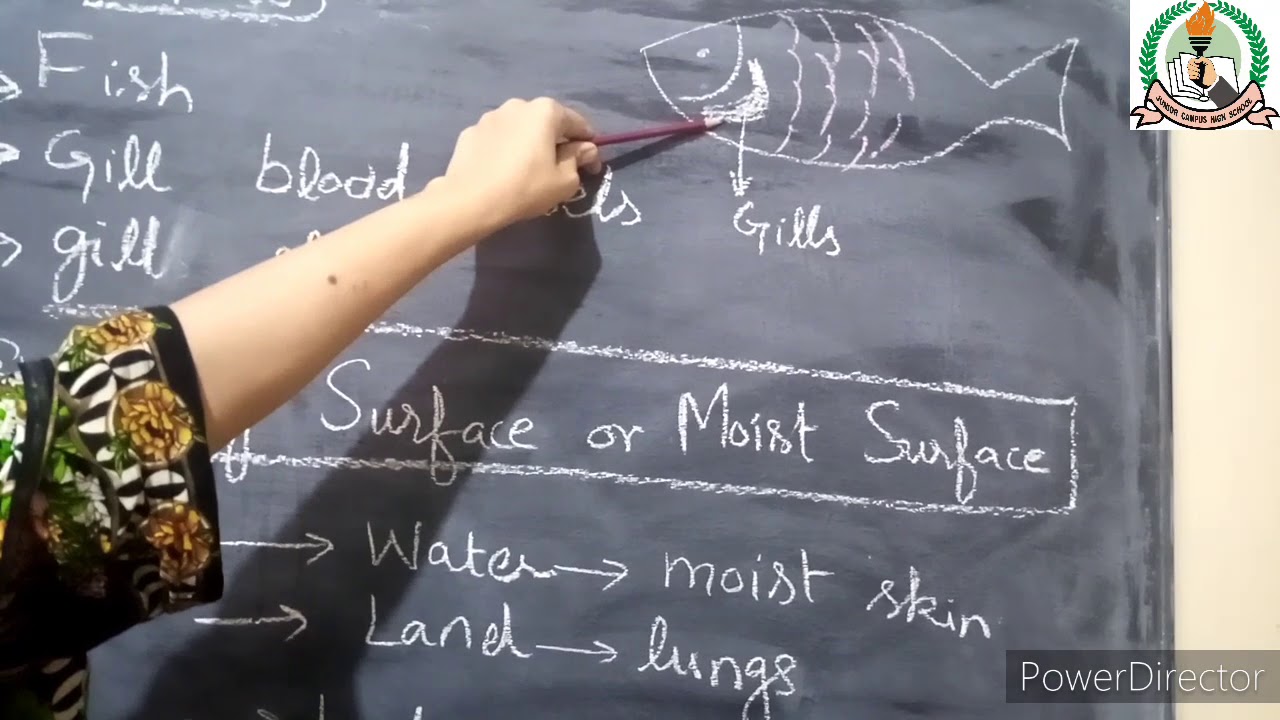 Fish
Gill blood
gill
Gills
Surface or Moist Surface
Water → moist skin
Land → lungs
JUNIOR CAMPUS HIGH SCHOOL
PowerDirector